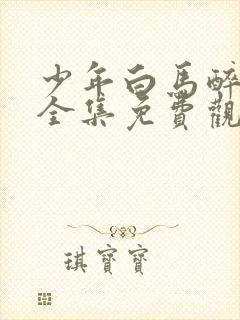 少年白馬醉
全集免費觀
琪寶寶